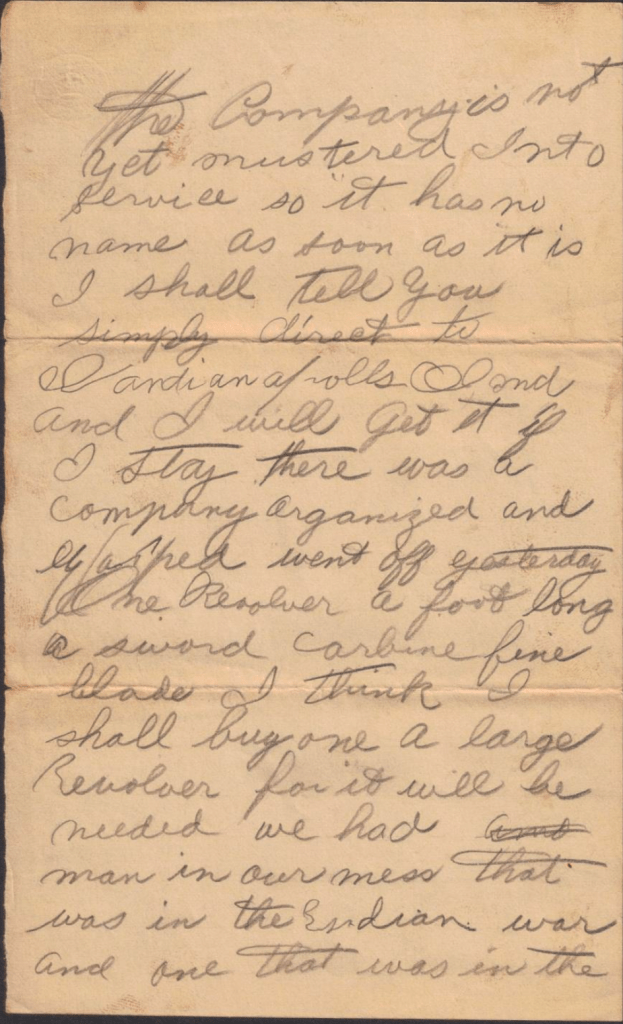 The Company is not
yet mustered Into
service so it has no
name as soon as it is
I shall tell You
simply direct to
Iandianapolls Ind
and I will Get it if
I stay there was a
company organized and
went off yesterday
One Revolver a foot long
a sword carbine fine
blade I think I
shall buy one a large
Revolver for it will be
needed we had
man in our mess that
was in the Endian war
and one that was in the